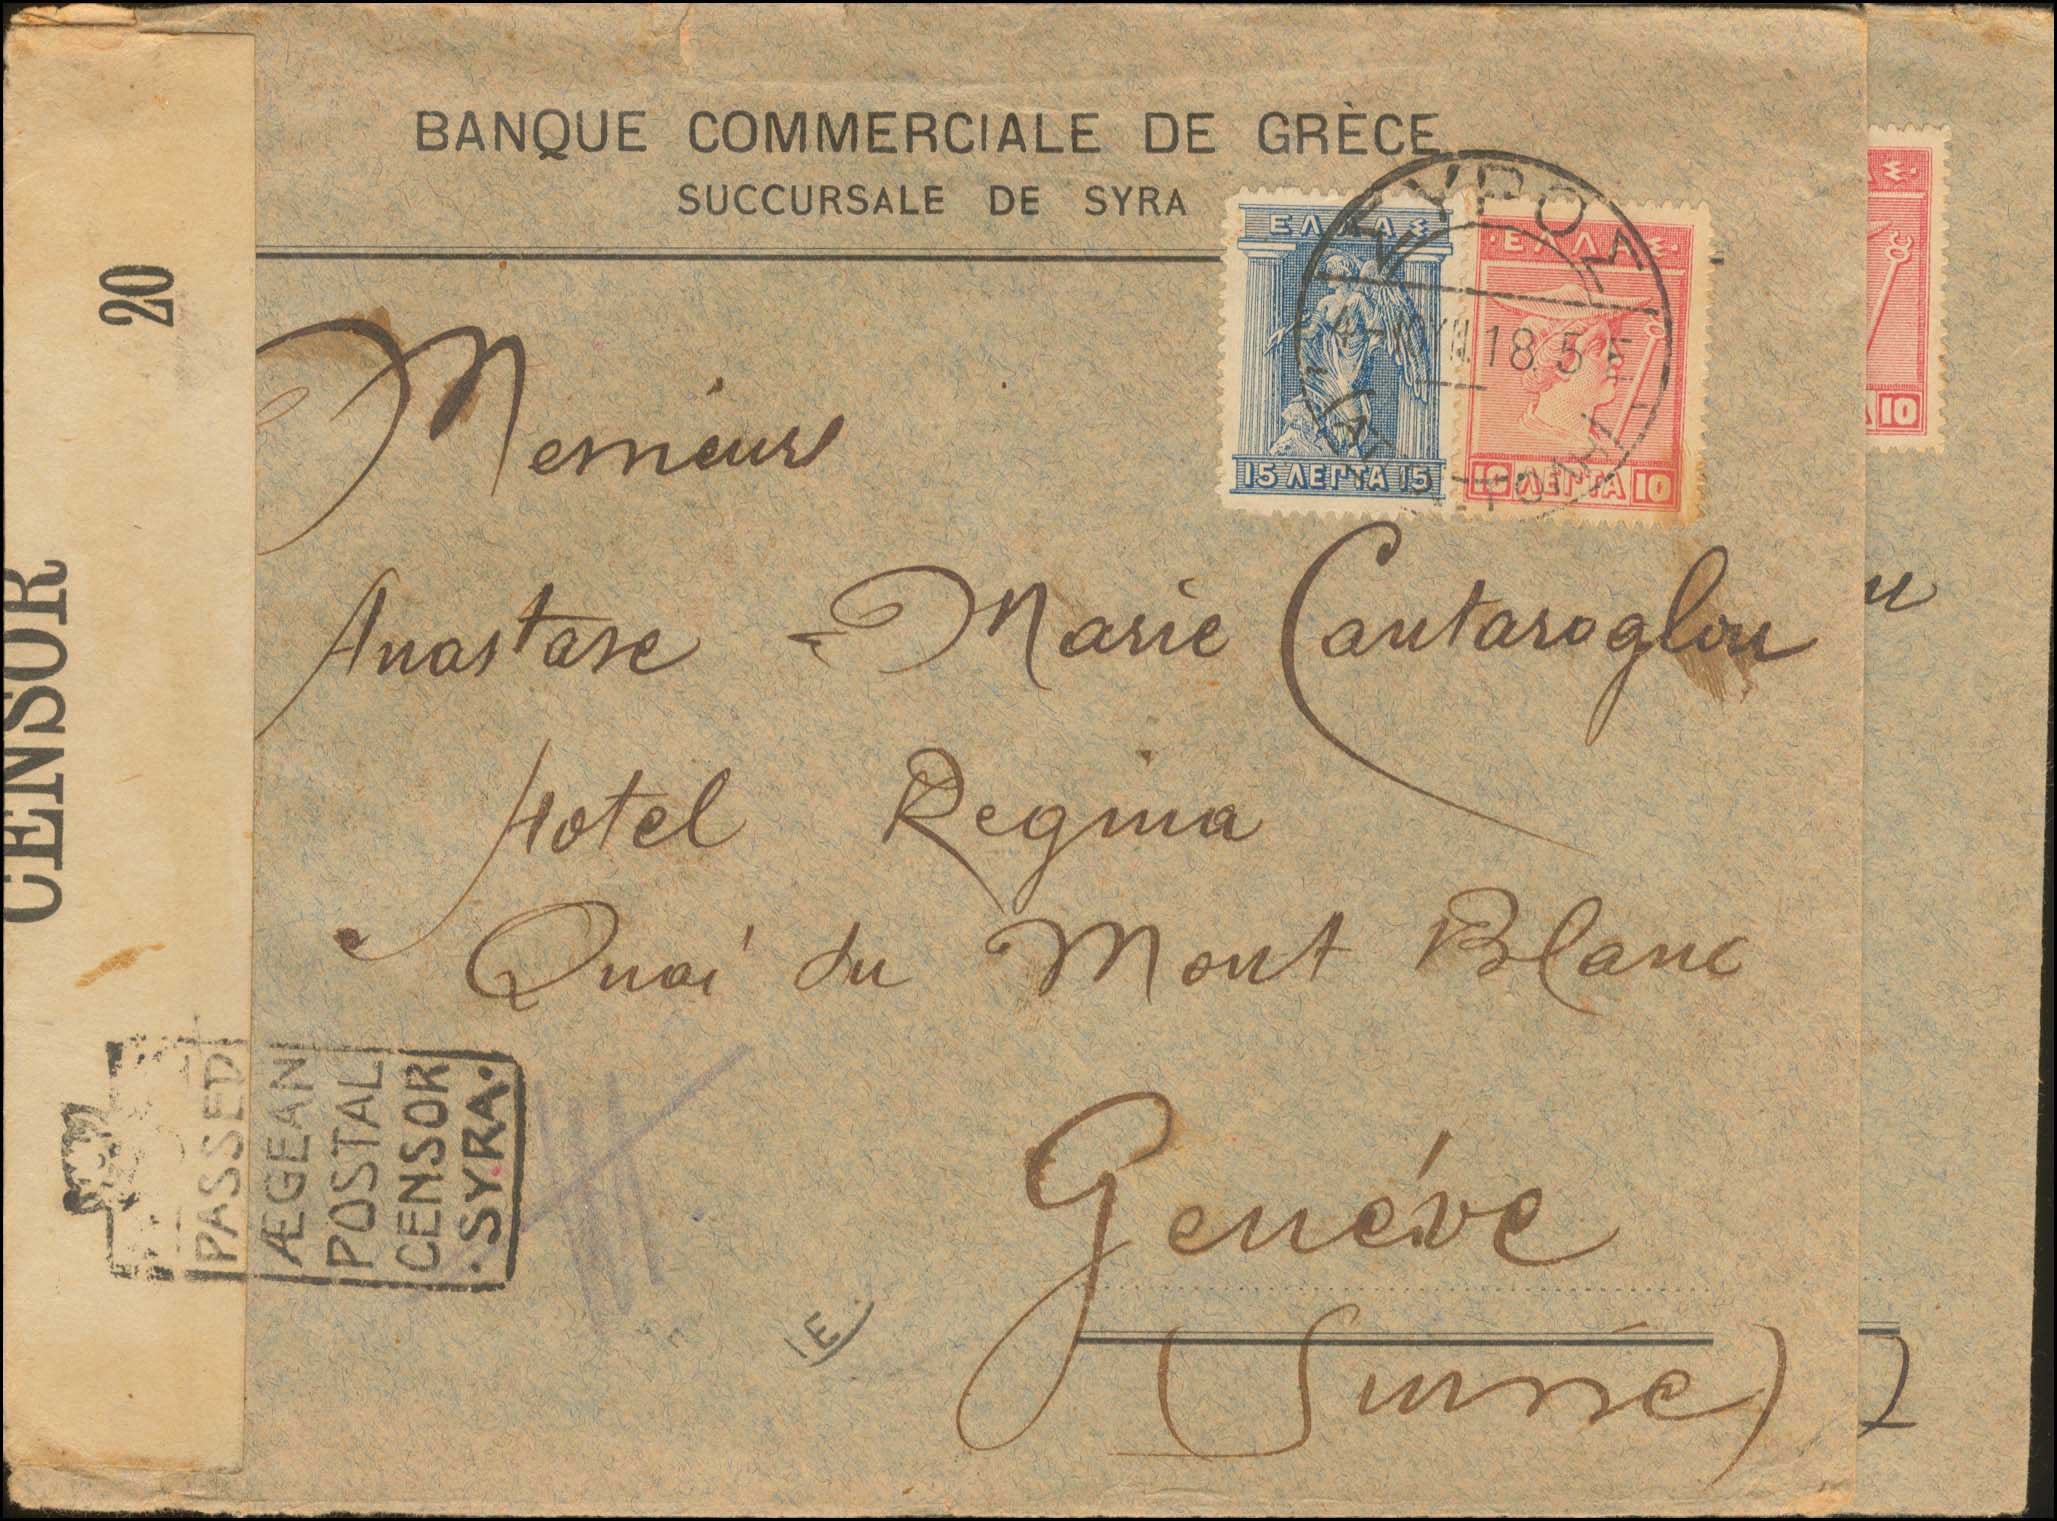 BANQUE COMMERCIALE DE GRÈCE
SUCCURSALE DE SYRA
ΕΛΛΑΣ
15 ΛΕΠΤΑ 15
·ΕΛΛΑΣ·
10 ΛΕΠΤΑ 10
ΣΥΡΟΣ
18.5
10
Messieurs
Anastase - Marie Cantaroglou
Hotel Regina
Quai du Mont Blanc
Genéve
(Suisse)
20
CENSOR
PASSED
ÆGEAN
POSTAL
CENSOR
·SYRA·
E